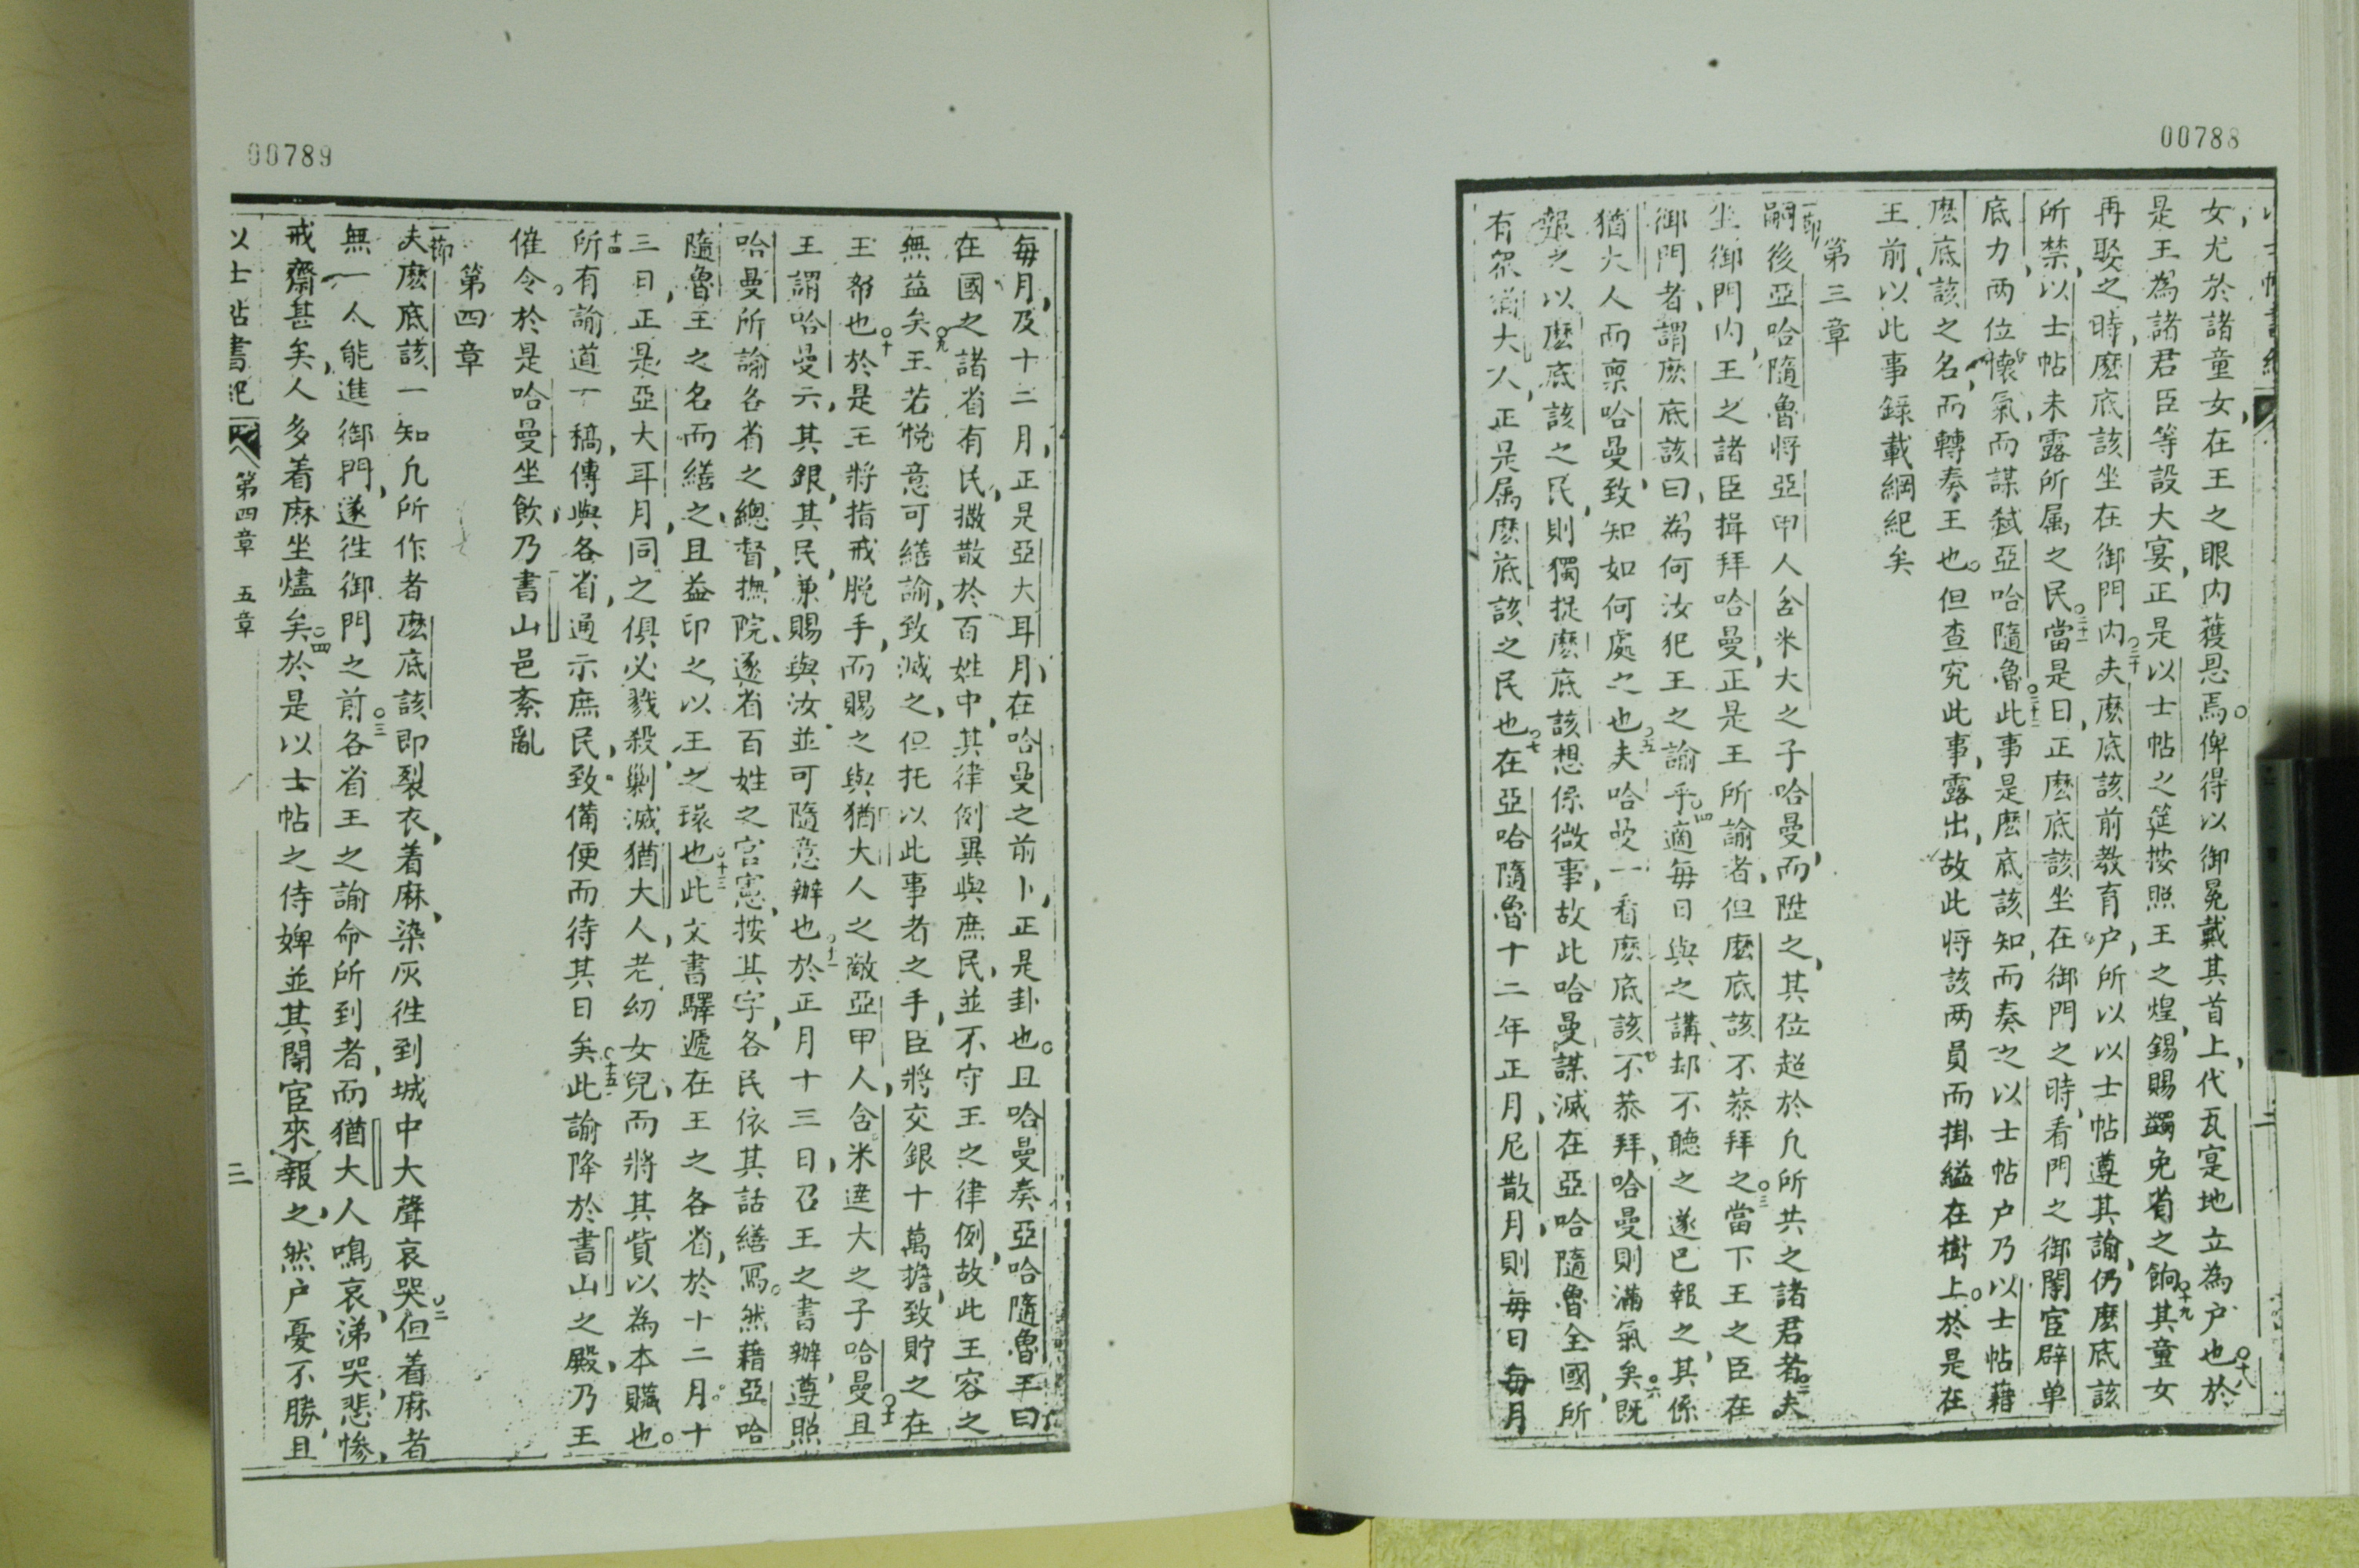 00788
女尤於諸童女在王之眼內獲恩焉俾得以御冕戴其首上代瓦寔地立為户也○十八於
是王為諸君臣等設大宴正是以士帖之筵按照王之煌錫賜蠲免省之餉○十九其童女
再娶之時麽底該坐在御門內○二十夫麽底該前教育户所以以士帖遵其諭仍麽底該
所禁以士帖未露所属之民○二十一當是日正麽底該坐在御門之時看門之御閽宦辟单
底力两位懷氣而謀弑亞哈隨魯○二十二此事是麽底該知而奏之以士帖户乃以士帖藉
麽底該之名而轉奏王也。但查究此事露出故此将該两員而掛縊在樹上。於是在
王前以此事錄載綱紀矣
第三章
一節嗣後亞哈隨魯将亞甲人含米大之子哈曼而陞之其位超於凡所共之諸君者○二夫
坐御門內王之諸臣揖拜哈曼正是王所諭者但麽底該不恭拜之○三當下王之臣在
御門者謂麽底該曰為何汝犯王之諭乎○四適每日與之講却不聽之遂巳報之其係
猶大人而禀哈曼致知如何處之也○五夫哈曼一看麽底該不恭拜哈曼則滿氣矣○六既
報之以麽底該之民則獨捉麽底該想係微事故此哈曼謀滅在亞哈隨魯全國所
有眾猶大人正是属麽底該之民也○七在亞哈隨魯十二年正月尼散月則每日每月
00789
每月及十二月正是亞大耳月在哈曼之前卜正是卦也。且哈曼奏亞哈隨魯王曰
在國之諸省有民撒散於百姓中其律例異與庶民並不守王之律例故此王容之
無益矣○九王若悅意可繕諭致滅之但托以此事者之手臣將交銀十萬擔致貯之在
王帑也○十於是王將指戒脱手而賜之與猶大人之敵亞甲人含米大之子哈曼○十一且
王謂哈曼云其銀其民兼賜與汝並可隨意辦也○十二於正月十三日召王之書辦遵照
哈曼所諭各省之總督撫院逐省百姓之官憲按其字各民依其話繕寫。然藉亞哈
隨魯王之名而繕之且盖印之以王之環也○十三此文書驛遞在王之各省於十二月。十
三日正是亞大耳月同之俱必戮殺剿滅猶大人老幼女兒而將其貲以為本贓也。
十四節所有諭道一稿傳與各省通示庶民致備便而待其日矣○十五此諭降於書山之殿乃王
催令。於是哈曼坐飲乃書山邑紊亂
第四章
一節夫麽底該一知凡所作者麽底該即裂衣着麻染灰徃到城中大聲哀哭○二但着麻者
無一人能進御門遂徃御門之前○三各省王之諭命所到者而猶大人鳴哀涕哭悲慘
戒齋甚矣人多着麻坐燼矣○四於是以士帖之侍婢並其閽宦來報之然户憂不勝且
以士帖書紀 第四章 五章 二